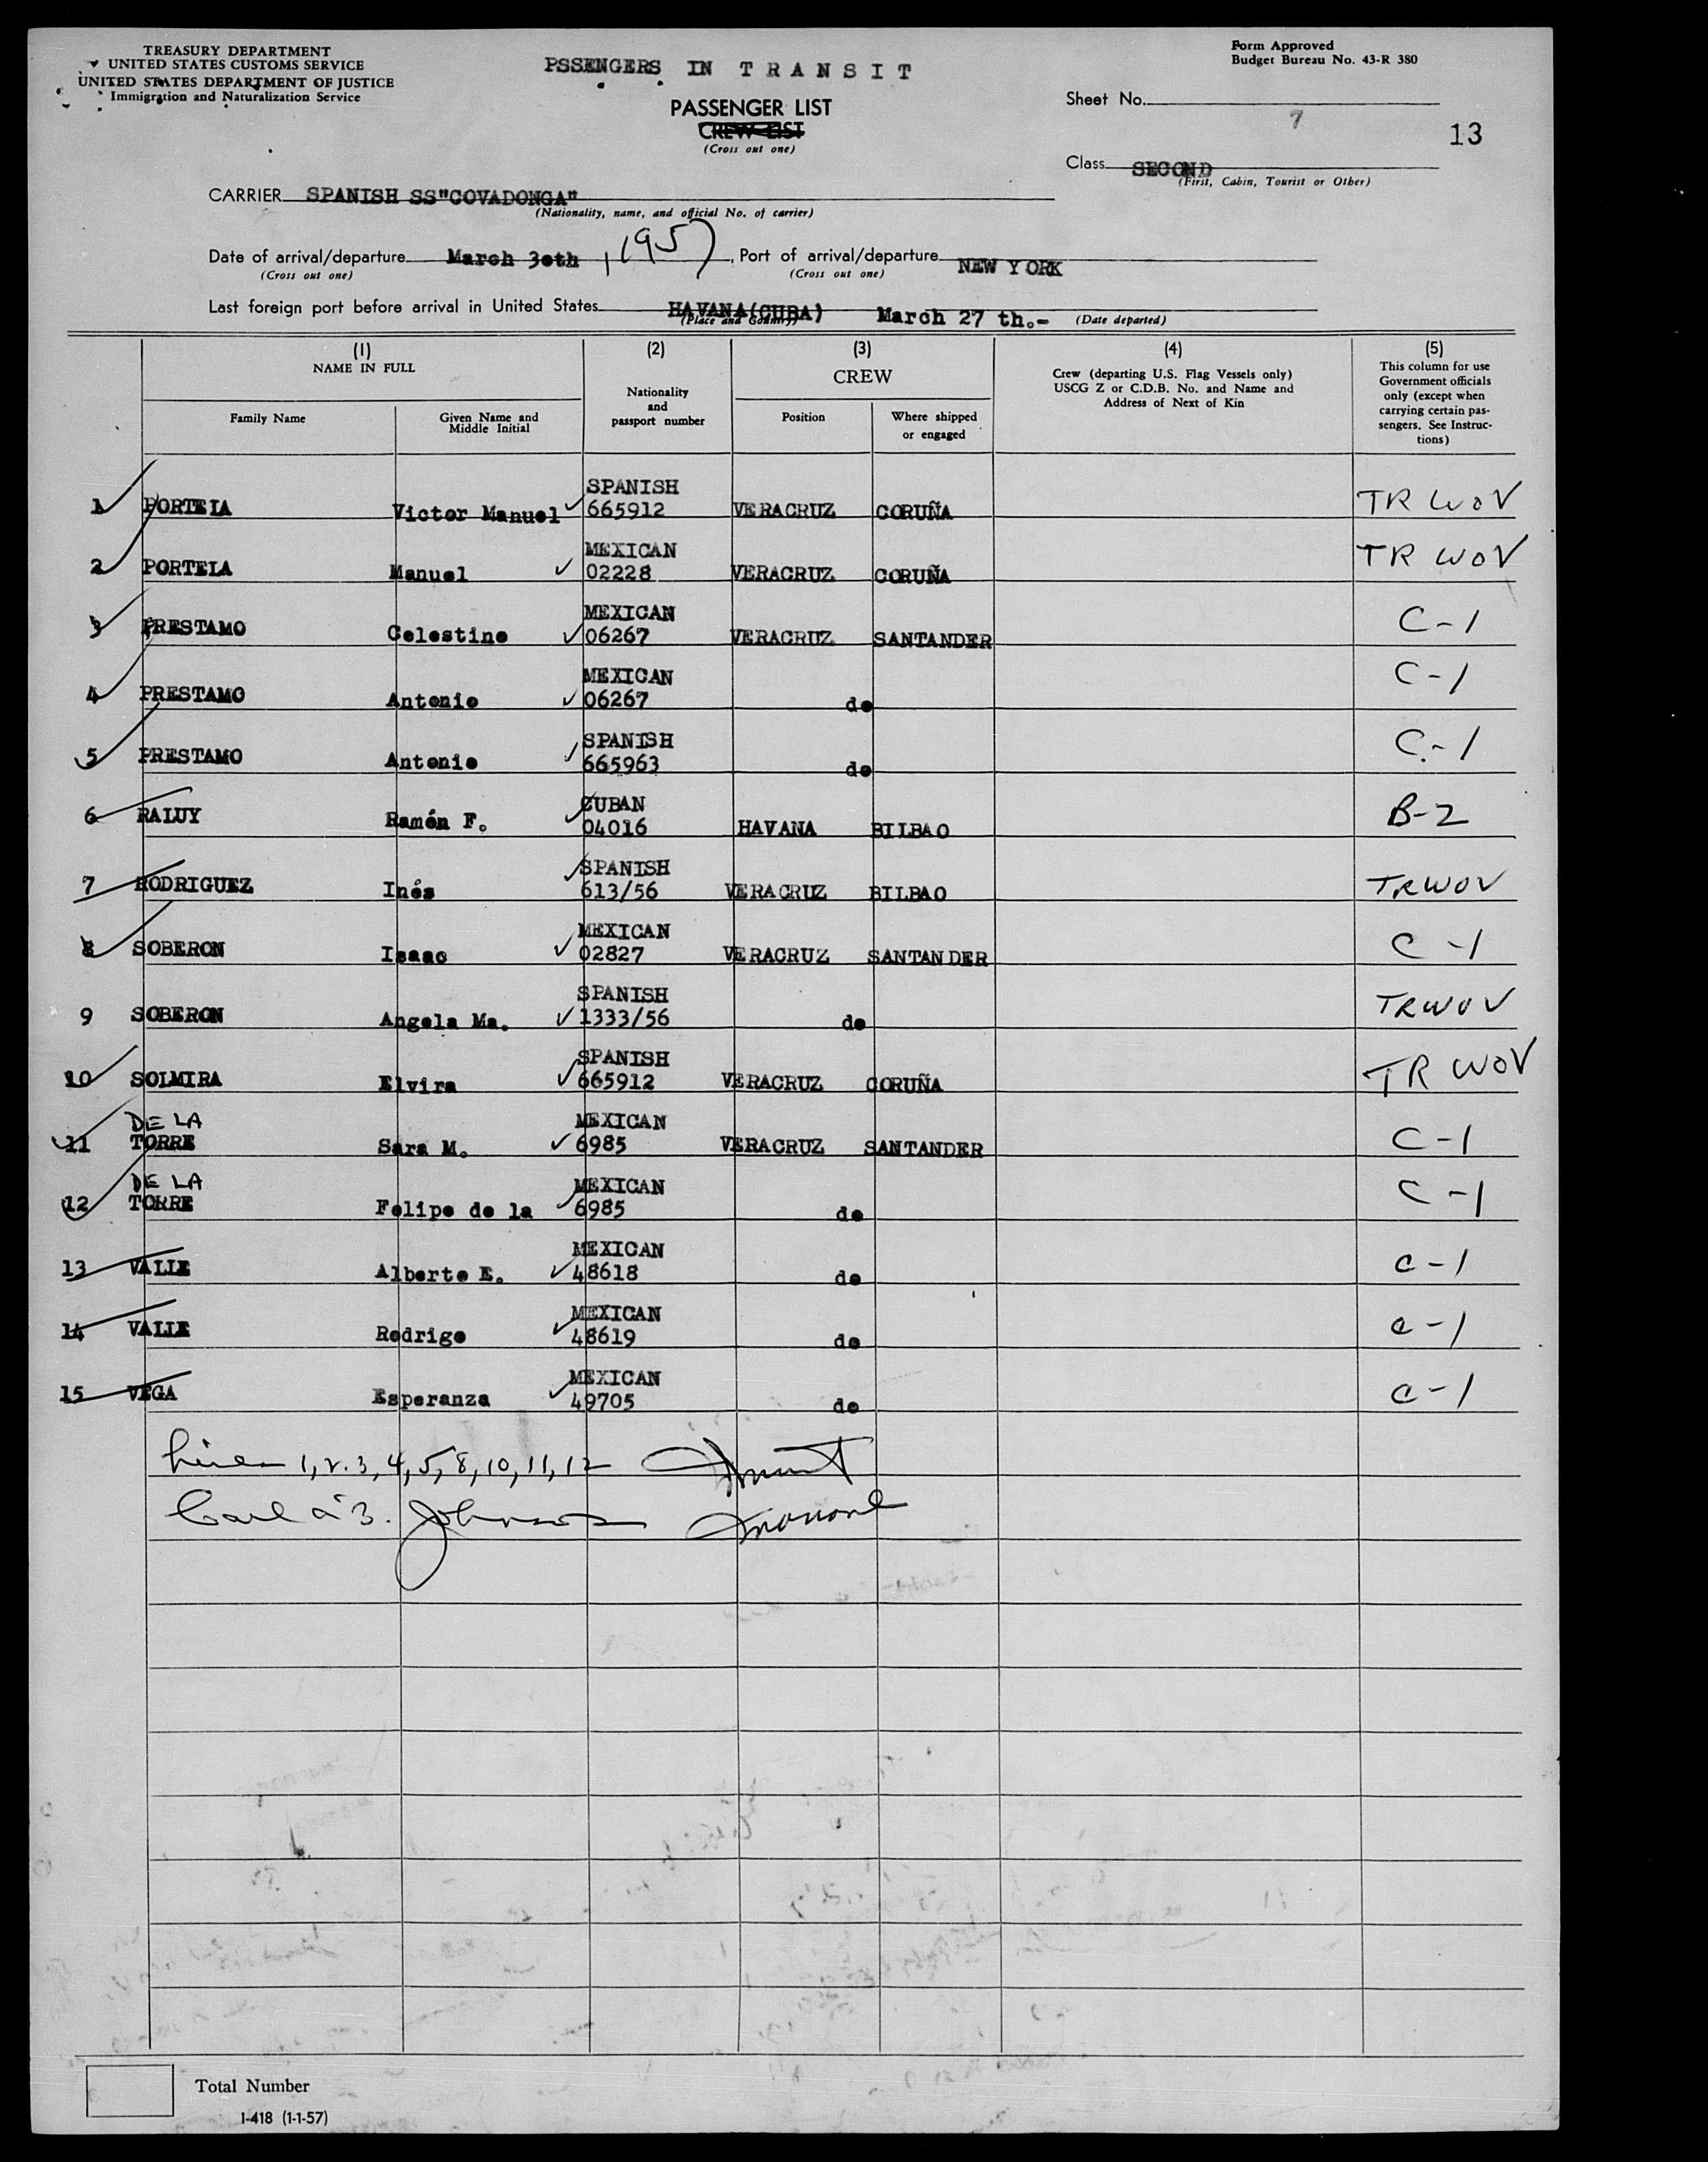 TREASURY DEPARTMENT
UNITED STATES CUSTOMS SERVICE
UNITED STATES DEPARTMENT OF JUSTICE
Immigration and Naturalization Service
PSSENGERS IN T R A N S I T
PASSENGER LIST
CREW LIST
(Cross out one)
Form Approved
Budget Bureau No. 43-R 380
Sheet No.
7
13
Class SECOND
(First, Cabin, Tourist or Other)
CARRIER SPANISH SS"COVADONGA"
(Nationality, name, and official No. of carrier)
Date of arrival/departure March 30th, 1957, Port of arrival/departure NEW YORK
(Cross out one) (Cross out one)
Last foreign port before arrival in United States HAVANA(CUBA) March 27 th.-
(Place and Country) (Date departed)
(1) (2) (3) (4) (5)
NAME IN FULL
Family Name
Given Name and Middle Initial
Nationality and passport number
CREW
Position
Where shipped or engaged
Crew (departing U.S. Flag Vessels only)
USCG Z or C.D.B. No. and Name and
Address of Next of Kin
This column for use
Government officials
only (except when
carrying certain pas-
sengers. See Instruc-
tions)
1 PORTELA Victor Manuel SPANISH 665912 VERACRUZ CORUÑA TR WOV
2 PORTELA Manuel MEXICAN 02228 VERACRUZ CORUÑA TR WOV
3 PRESTAMO Celestino MEXICAN 06267 VERACRUZ SANTANDER C-1
4 PRESTAMO Antonio MEXICAN 06267 do C-1
5 PRESTAMO Antonio SPANISH 665963 do C-1
6 RALUY Ramón F. CUBAN 04016 HAVANA BILBAO B-2
7 RODRIGUEZ Inés SPANISH 613/56 VERACRUZ BILBAO TRWOV
8 SOBERON Isaac MEXICAN 02827 VERACRUZ SANTANDER C-1
9 SOBERON Angela Ma. SPANISH 1333/56 do TRWOV
10 SOLMIRA Elvira SPANISH 665912 VERACRUZ CORUÑA TR WOV
11 DE LA TORRE Sara M. MEXICAN 6985 VERACRUZ SANTANDER C-1
12 DE LA TORRE Felipe de la MEXICAN 6985 do C-1
13 VALLE Alberto E. MEXICAN 48618 do C-1
14 VALLE Rodrigo MEXICAN 48619 do C-1
15 VEGA Esperanza MEXICAN 49705 do C-1
Lines 1, 2. 3, 4, 5, 8, 10, 11, 12
Johnson
Total Number
I-418 (1-1-57)